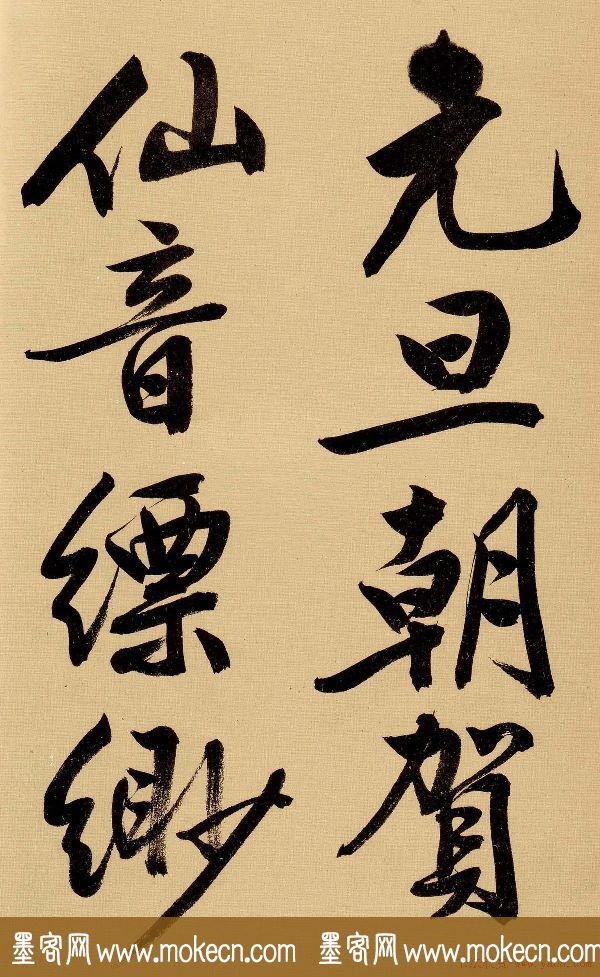 元旦朝賀
仙音縹緲
墨客网 www.mokecn.com 墨客网 www.mokecn.com